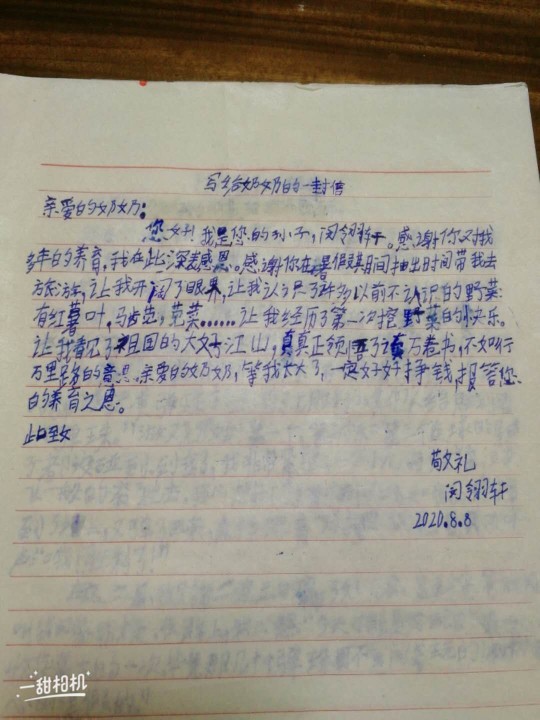 写给奶奶的一封信
亲爱的奶奶：
您好！我是您的孙子，闵翎轩。感谢你对我
多年的养育，我在此深表感恩。感谢你在暑假期间抽出时间带我去
旅游，让我开阔了眼界，让我认识了许多以前不认识的野菜
有红薯叶，马齿苋，苋菜……让我经历了第一次挖野菜的快乐。
让我看见了祖国的大好江山，真真正领悟了读万卷书，不如行
万里路的意思。亲爱的奶奶，等我长大了，一定好好挣钱报答您
的养育之恩。
此致
敬礼
闵翎轩
2020.8.8
一甜相机